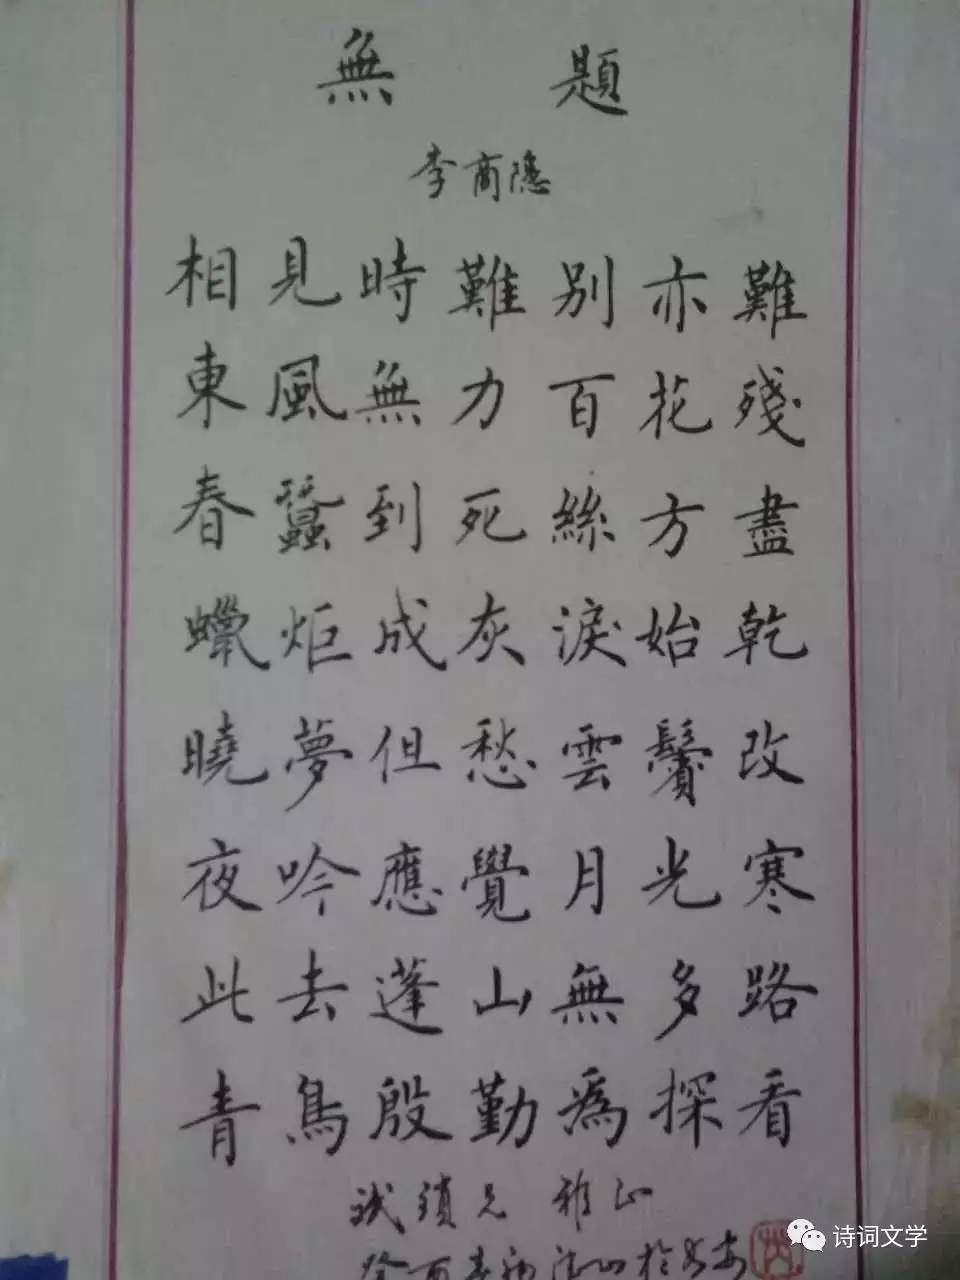 無題
李商隱
相見時難別亦難
東風無力百花殘
春蠶到死絲方盡
蠟炬成灰淚始乾
曉夢但愁雲鬢改
夜吟應覺月光寒
此去蓬山無多路
青鳥殷勤為探看
兄雅正
诗词文学